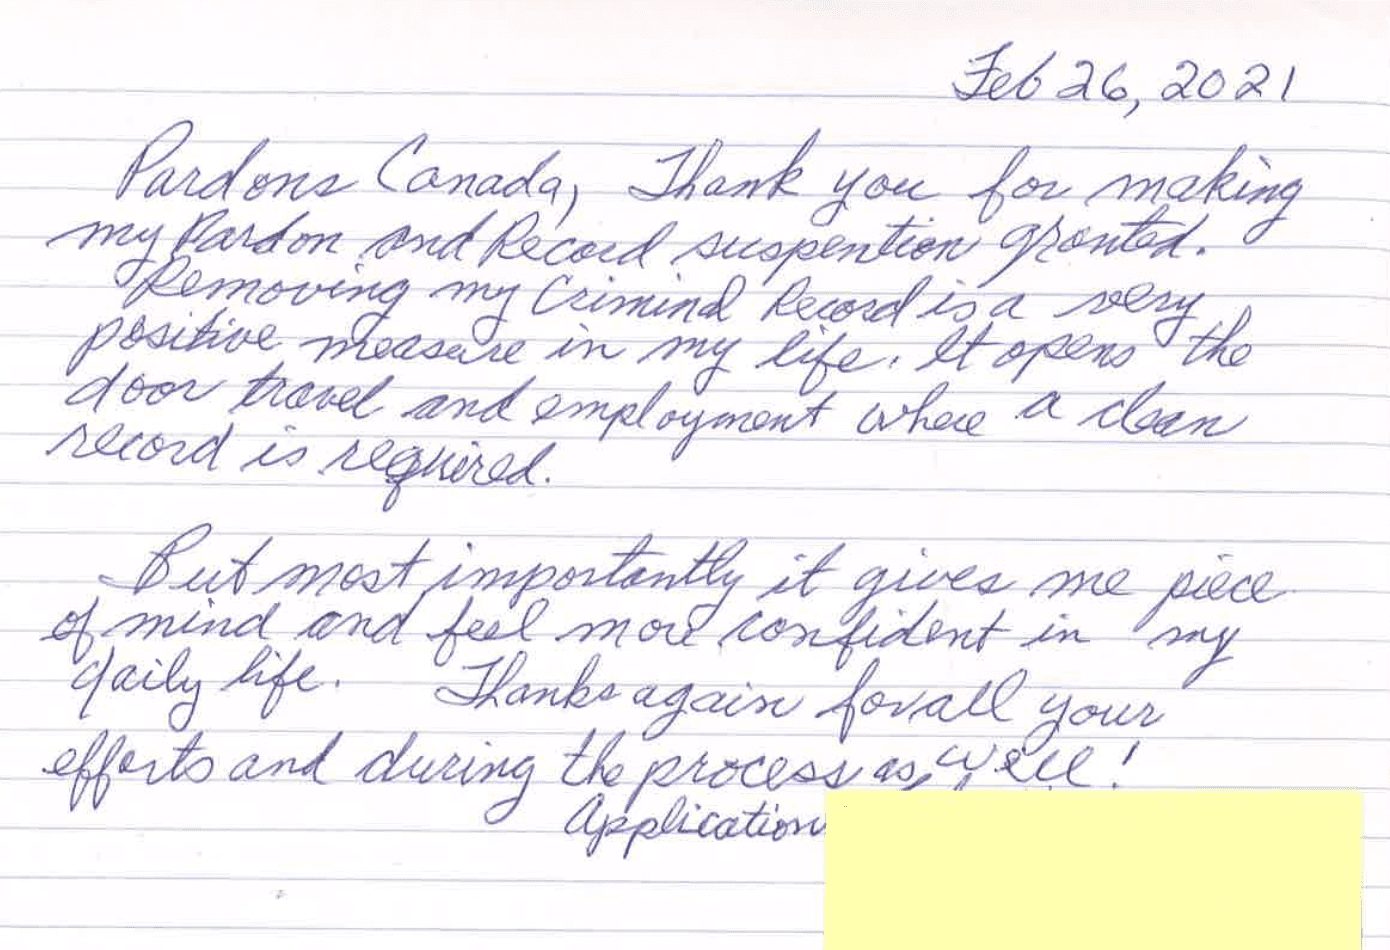 Feb 26, 2021
Pardons Canada, Thank you for making
my Pardon and Record suspention granted.
Removing my Criminal Record is a very
positive measure in my life. It opens the
door travel and employment where a clean
record is required.
But most importantly it gives me piece
of mind and feel more confident in my
daily life. Thanks again for all your
efforts and during the process as well!
Application